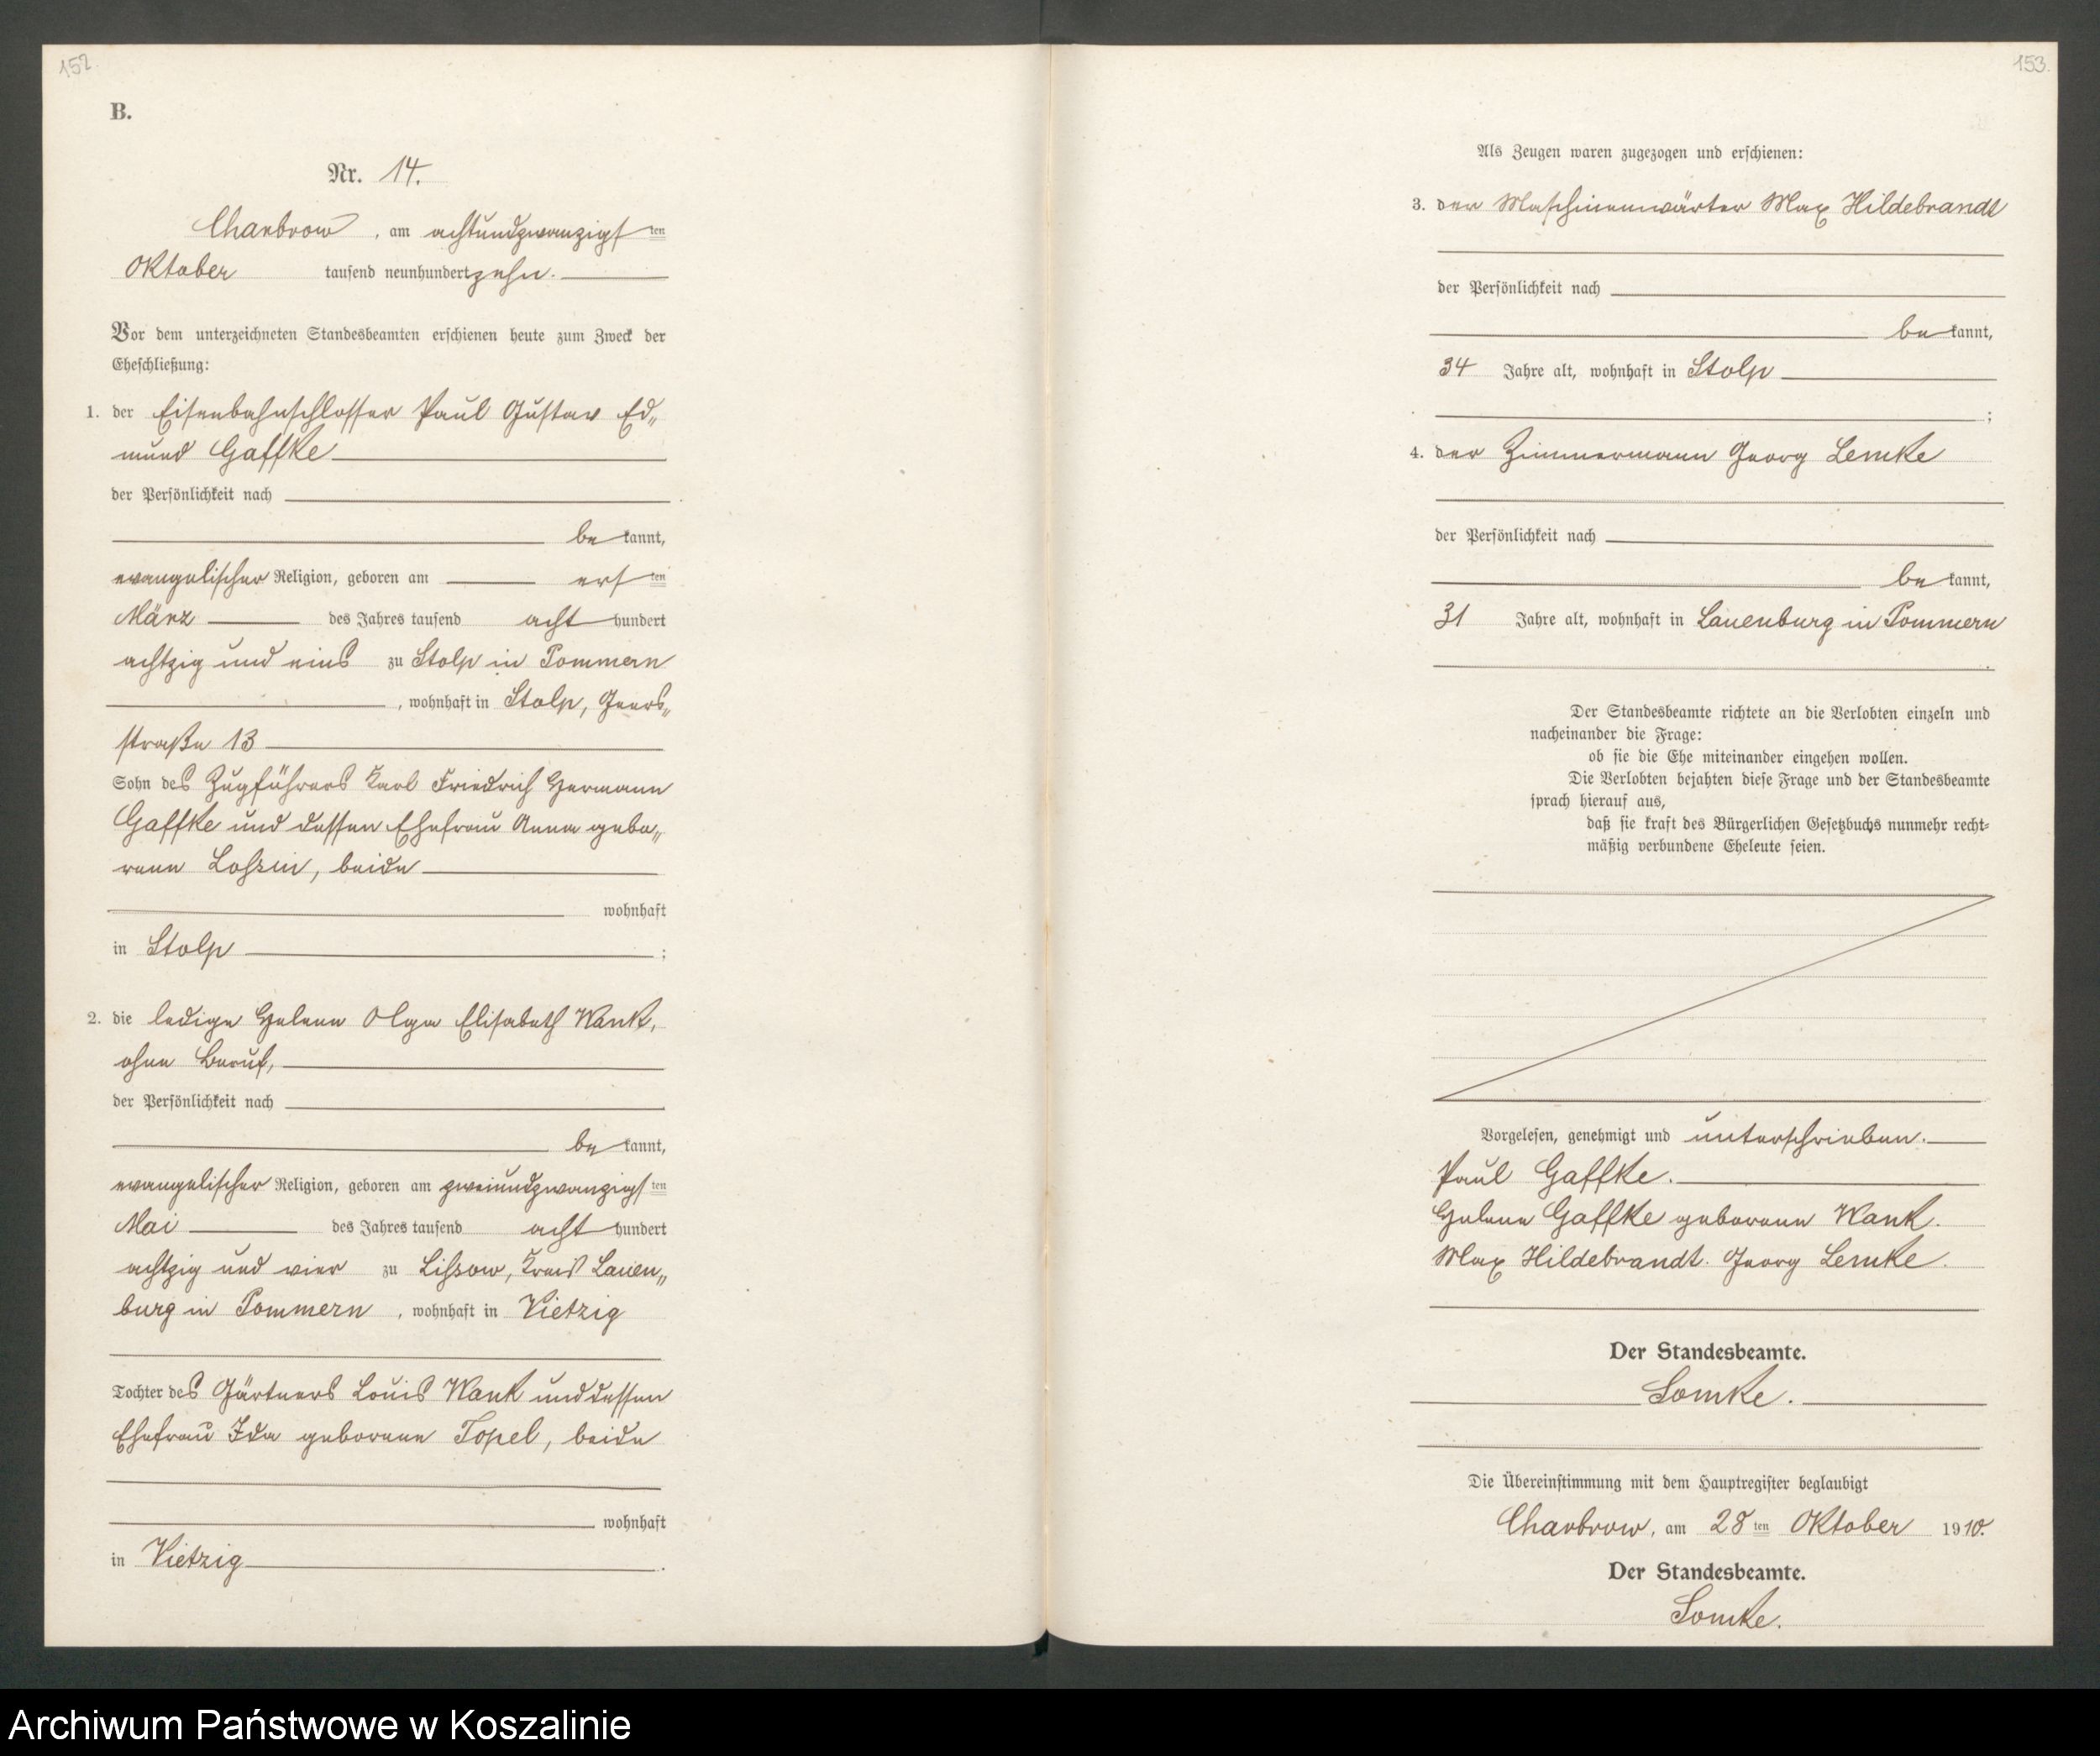 152.
B.
Nr. 14.
Charbrow, am achtundzwanzigsten
Oktober tausend neunhundert zehn.
Vor dem unterzeichneten Standesbeamten erschienen heute zum Zweck der
Eheschließung:
1. der Eisenbahnschlosser Paul Gustav Ed„
mund Gaffke
der Persönlichkeit nach
be kannt,
evangelischer Religion, geboren am ersten
März des Jahres tausend acht hundert
achtzig und eins zu Stolp in Pommern
, wohnhaft in Stolp, Geers„
straße 13
Sohn des Zugführers Karl Friedrich Hermann
Gaffke und dessen Ehefrau Anna gebo„
rene Loßin, beide
wohnhaft
in Stolp ;
2. die ledige Helene Olga Elisabeth Wank,
ohne Beruf,
der Persönlichkeit nach
be kannt,
evangelischer Religion, geboren am zweiundzwanzigsten
Mai des Jahres tausend acht hundert
achtzig und vier zu Lißow, Kreis Lauen„
burg in Pommern, wohnhaft in Vietzig
Tochter des Gärtners Louis Wank und dessen
Ehefrau Ida geborene Topel, beide
wohnhaft
in Vietzig.
153.
Als Zeugen waren zugezogen und erschienen:
3. der Maschinenwärter Max Hildebrandt
der Persönlichkeit nach
be kannt,
34 Jahre alt, wohnhaft in Stolp
;
4. der Zimmermann Georg Lemke
der Persönlichkeit nach
be kannt,
31 Jahre alt, wohnhaft in Lauenburg in Pommern
.
Der Standesbeamte richtete an die Verlobten einzeln und
nacheinander die Frage:
ob sie die Ehe miteinander eingehen wollen.
Die Verlobten bejahten diese Frage und der Standesbeamte
sprach hierauf aus,
daß sie kraft des Bürgerlichen Gesetzbuchs nunmehr recht-
mäßig verbundene Eheleute seien.
Vorgelesen, genehmigt und unterschrieben.
Paul Gaffke.
Helene Gaffke geborene Wank.
Max Hildebrandt. Georg Lemke.
Der Standesbeamte.
Lomke.
Die Übereinstimmung mit dem Hauptregister beglaubigt
Charbrow, am 28ten Oktober 1910.
Der Standesbeamte.
Lomke.
Archiwum Państwowe w Koszalinie